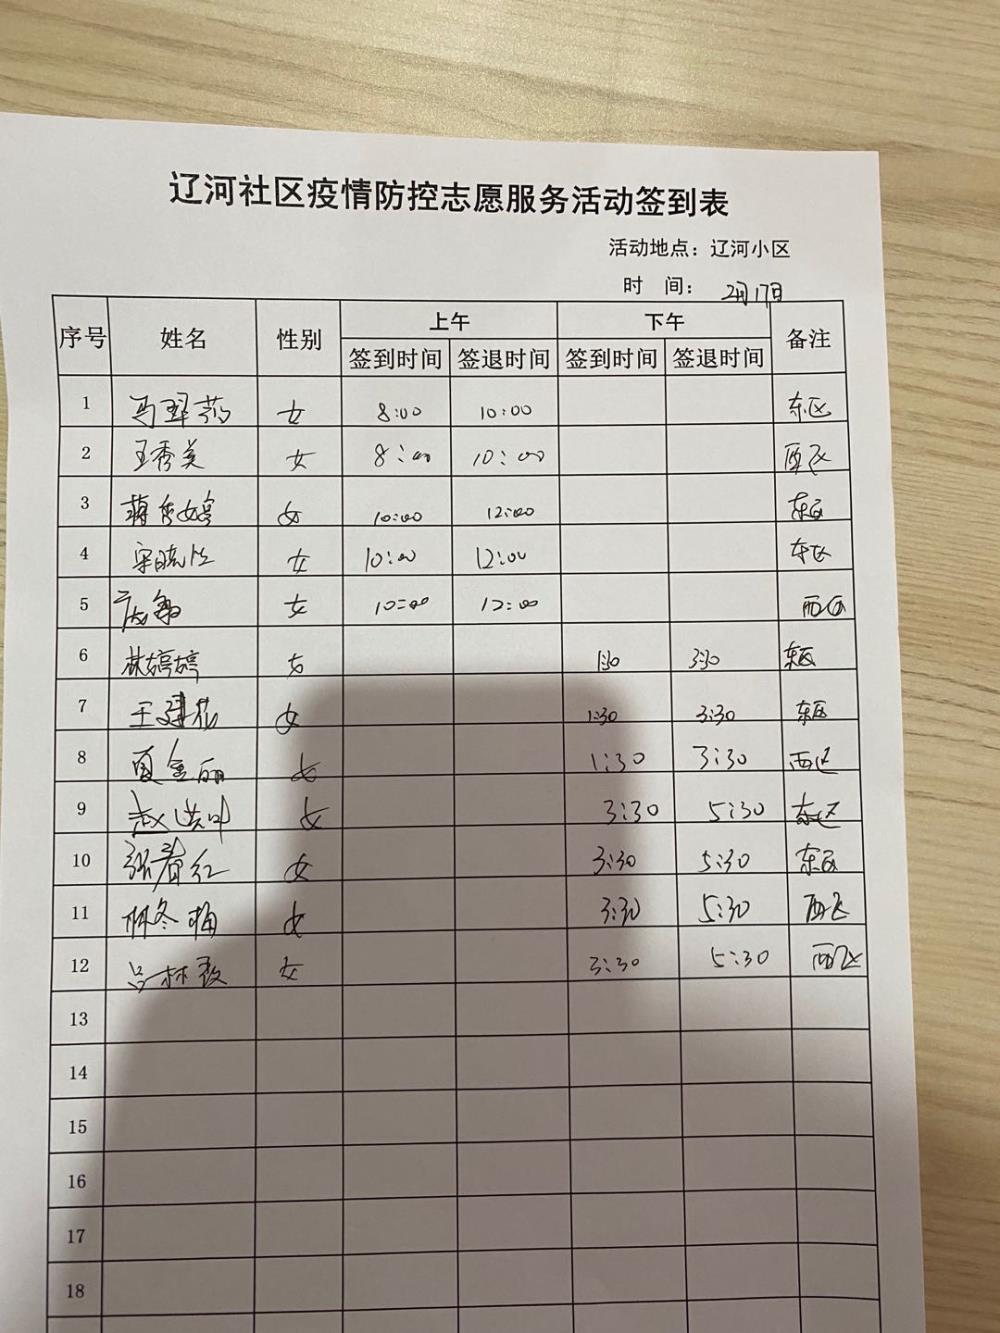 辽河社区疫情防控志愿服务活动签到表
活动地点：辽河小区
时 间： 2月17日
序号 姓名 性别 上午 下午 备注
签到时间 签退时间 签到时间 签退时间
1 马翠 女 8:00 10:00 东区
2 王秀美 女 8:00 10:00 西区
3 蒋秀婷 女 10:00 12:00 东区
4 宋晓 女 10:00 12:00 东区
5 女 10:00 12:00 西区
6 林婷婷 女 1:30 3:30 东区
7 王建花 女 1:30 3:30 东区
8 夏金丽 女 1:30 3:30 西区
9 赵洪叶 女 3:30 5:30 东区
10 张春红 女 3:30 5:30 东区
11 林冬梅 女 3:30 5:30 西区
12 吕林 女 3:30 5:30 西区
13
14
15
16
17
18